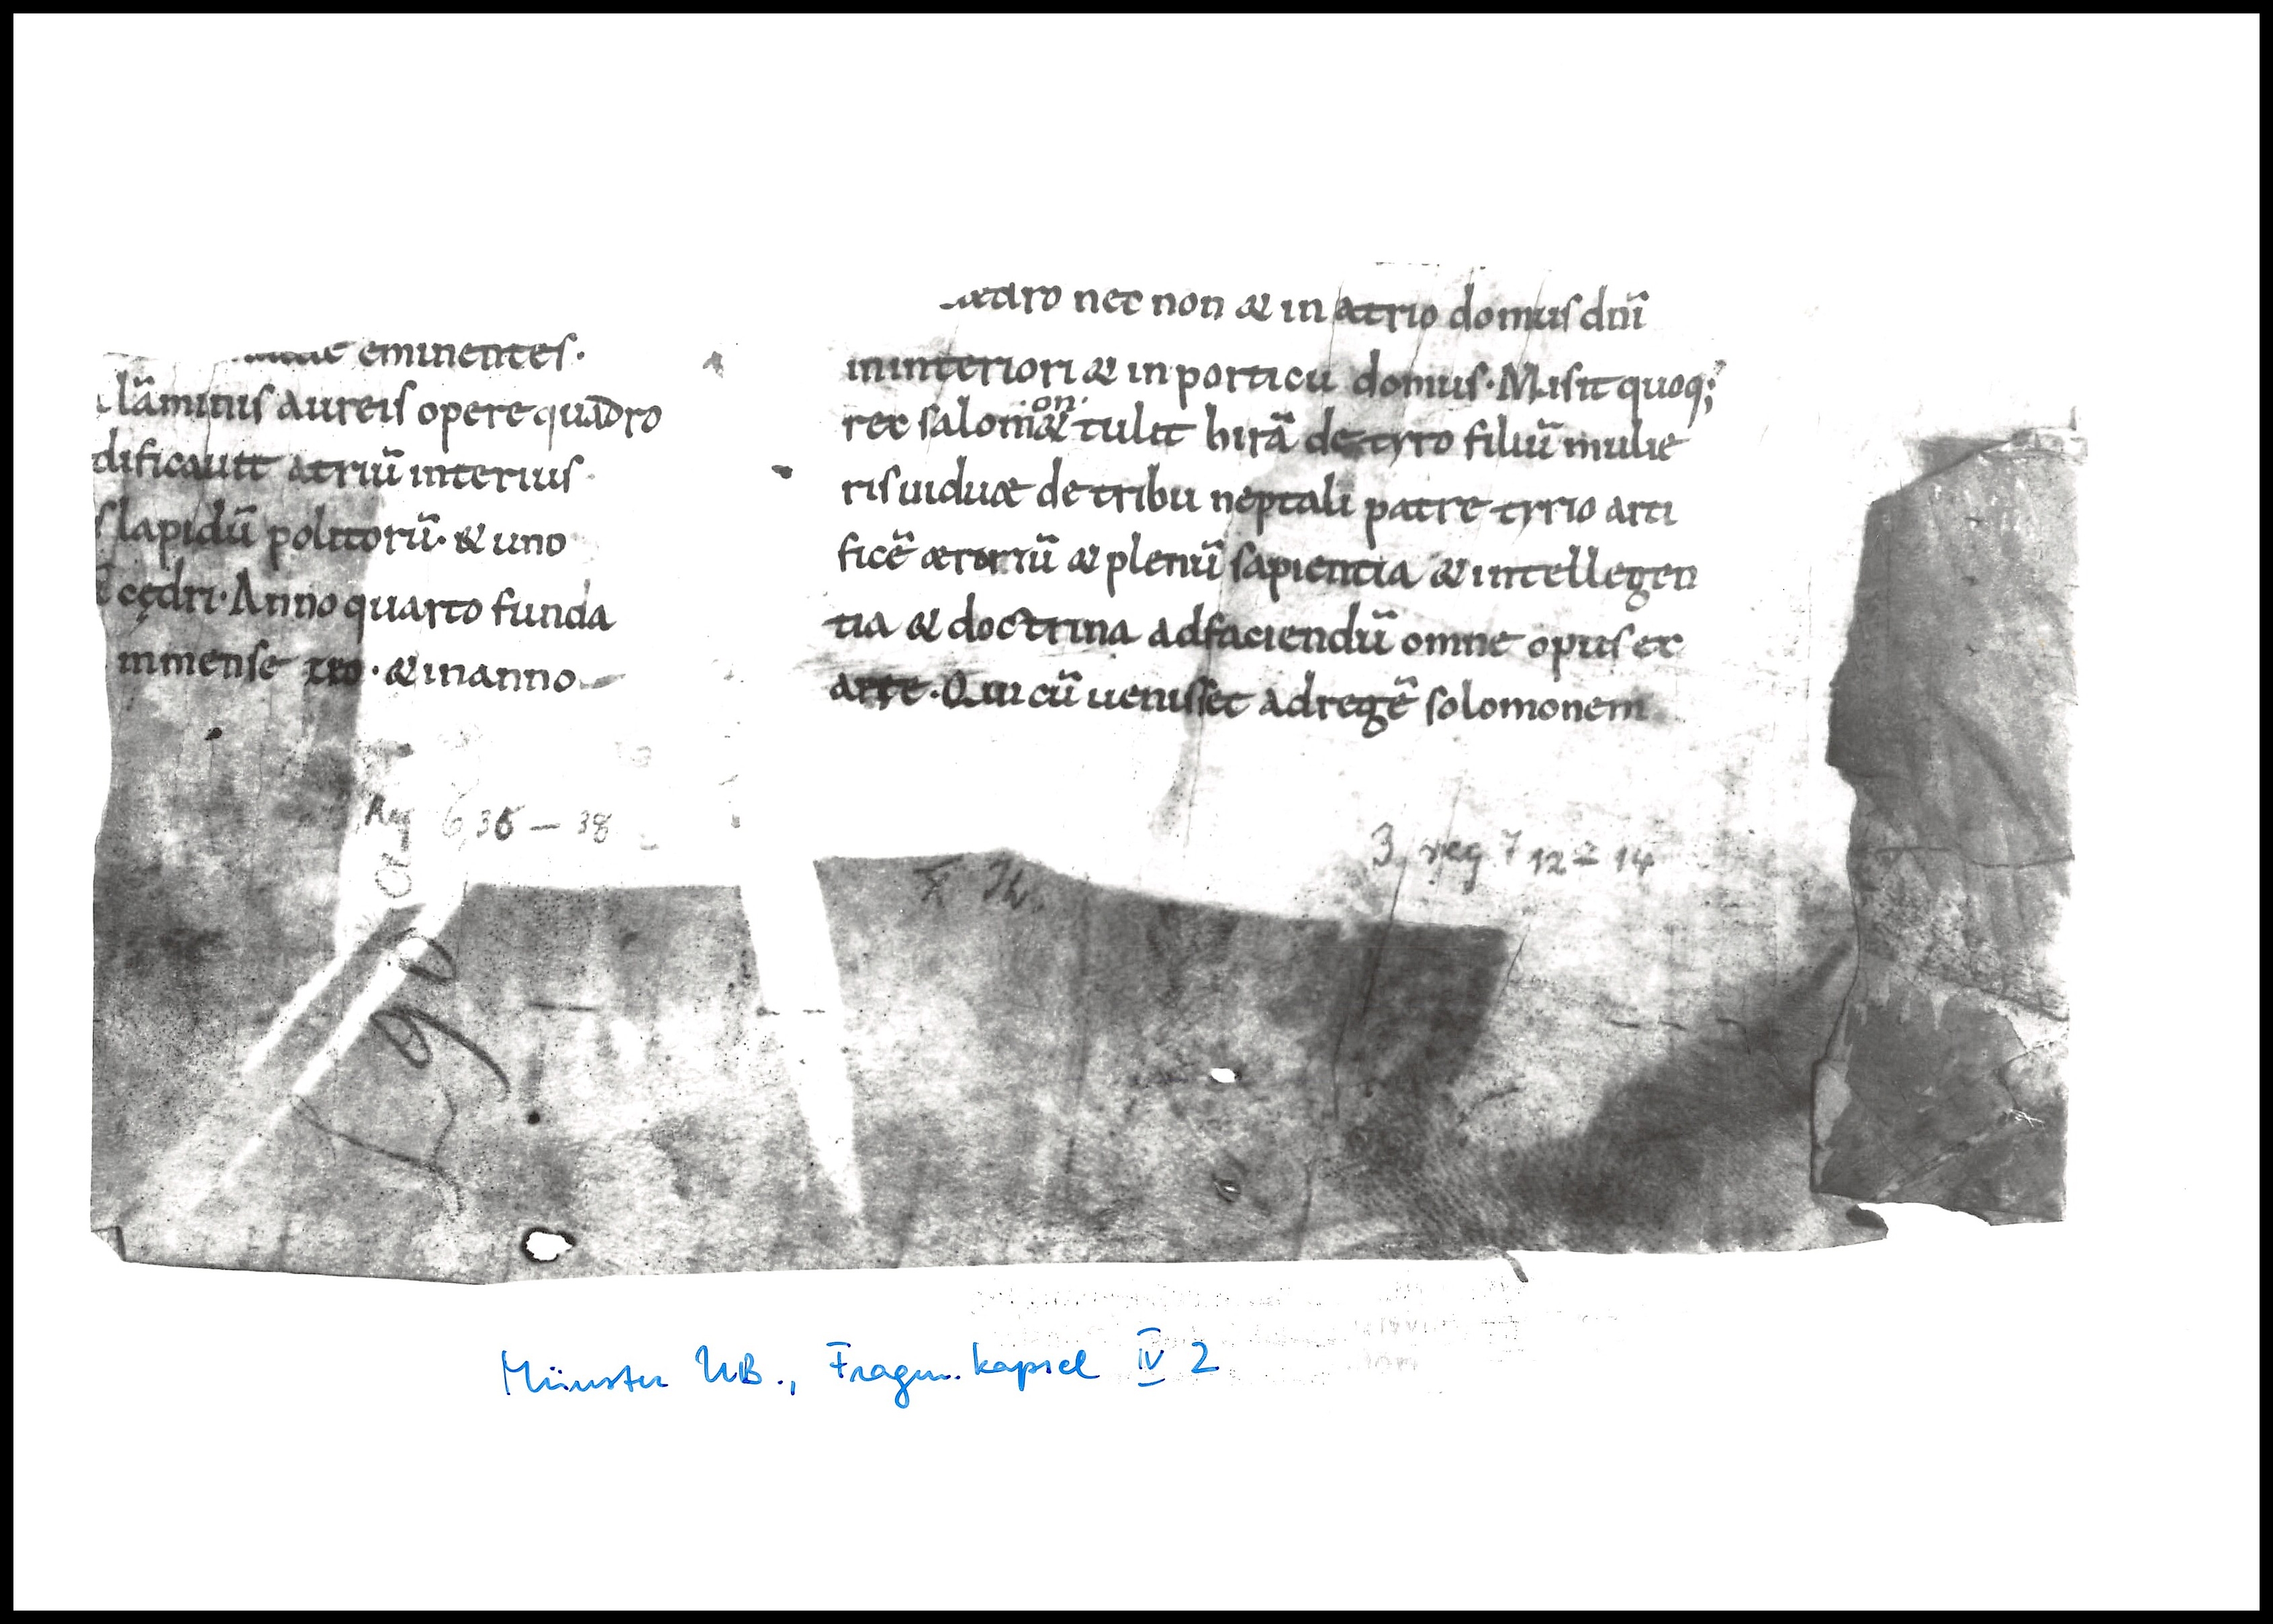 eminentes·
lāminis aureis opere quadro
dificauit atriū interius
s lapidū politorū· & uno
cędri· Anno quarto funda
inmense zio· & inanno
Reg 6, 36 – 38
nec non & in atrio domus dn̄i
ininteriori & inporticu domus· Misit quoq;
rex salomon & tulit hirā detyro filiū mulie
ris uiduæ detribu neptali patre tyrio arti
ficē ærariū & plenū sapientia & intellegen
tia & doctrina adfaciendū omne opus ex
arte· Qui cū uenisset adregē solomonem
3 reg 7 12–14
Münster UB., Fragm.kapsel IV 2